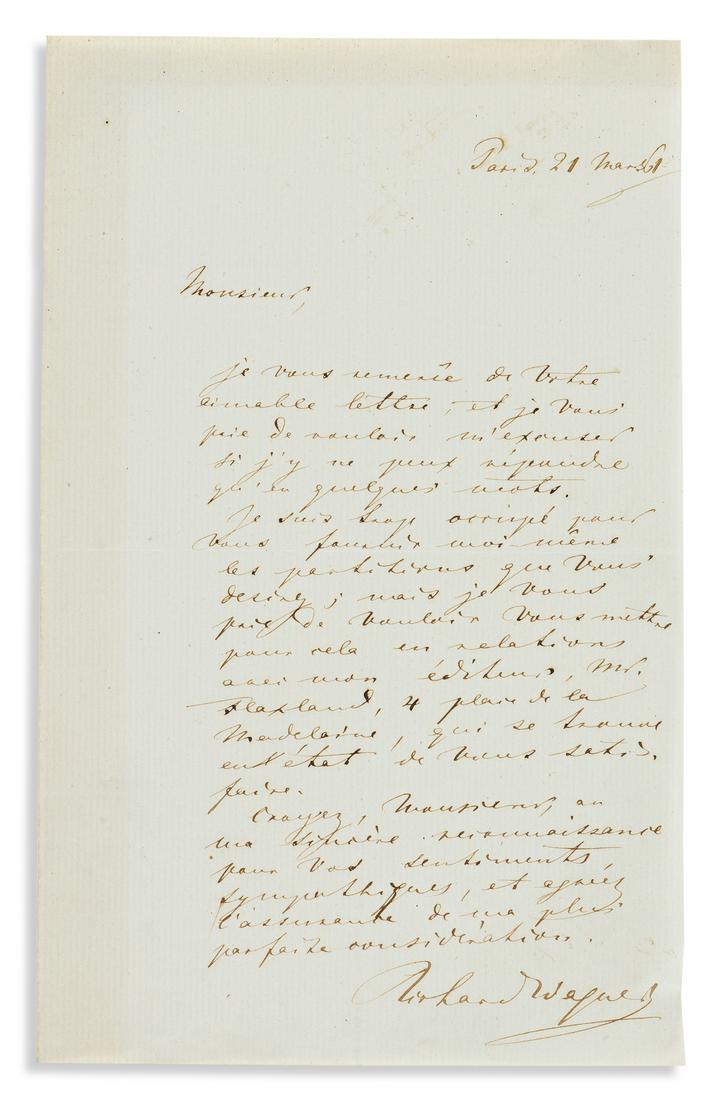 Paris. 21 Mars 61
Monsieur,
je vous remercie de Votre
aimable lettre, et je Vous
prie de vouloir m'excuser
si j'y ne peux répondre
qu'en quelques mots.
Je suis trop occupé pour
Vous fournir moi-même
les partitions que Vous
desirez; mais je Vous
prie de vouloir Vous mettre
pour cela en relations
avec mon éditeur, Mr.
Flaxland, 4 place de la
Madelaine, qui se trouve
en l'état de Vous satis-
faire.
Croyez, Monsieur, en
ma sincère reconnaissance
pour Vos sentiments
sympathiques, et agréez
l'assurance de ma plus
parfaite considération.
Richard Wagner